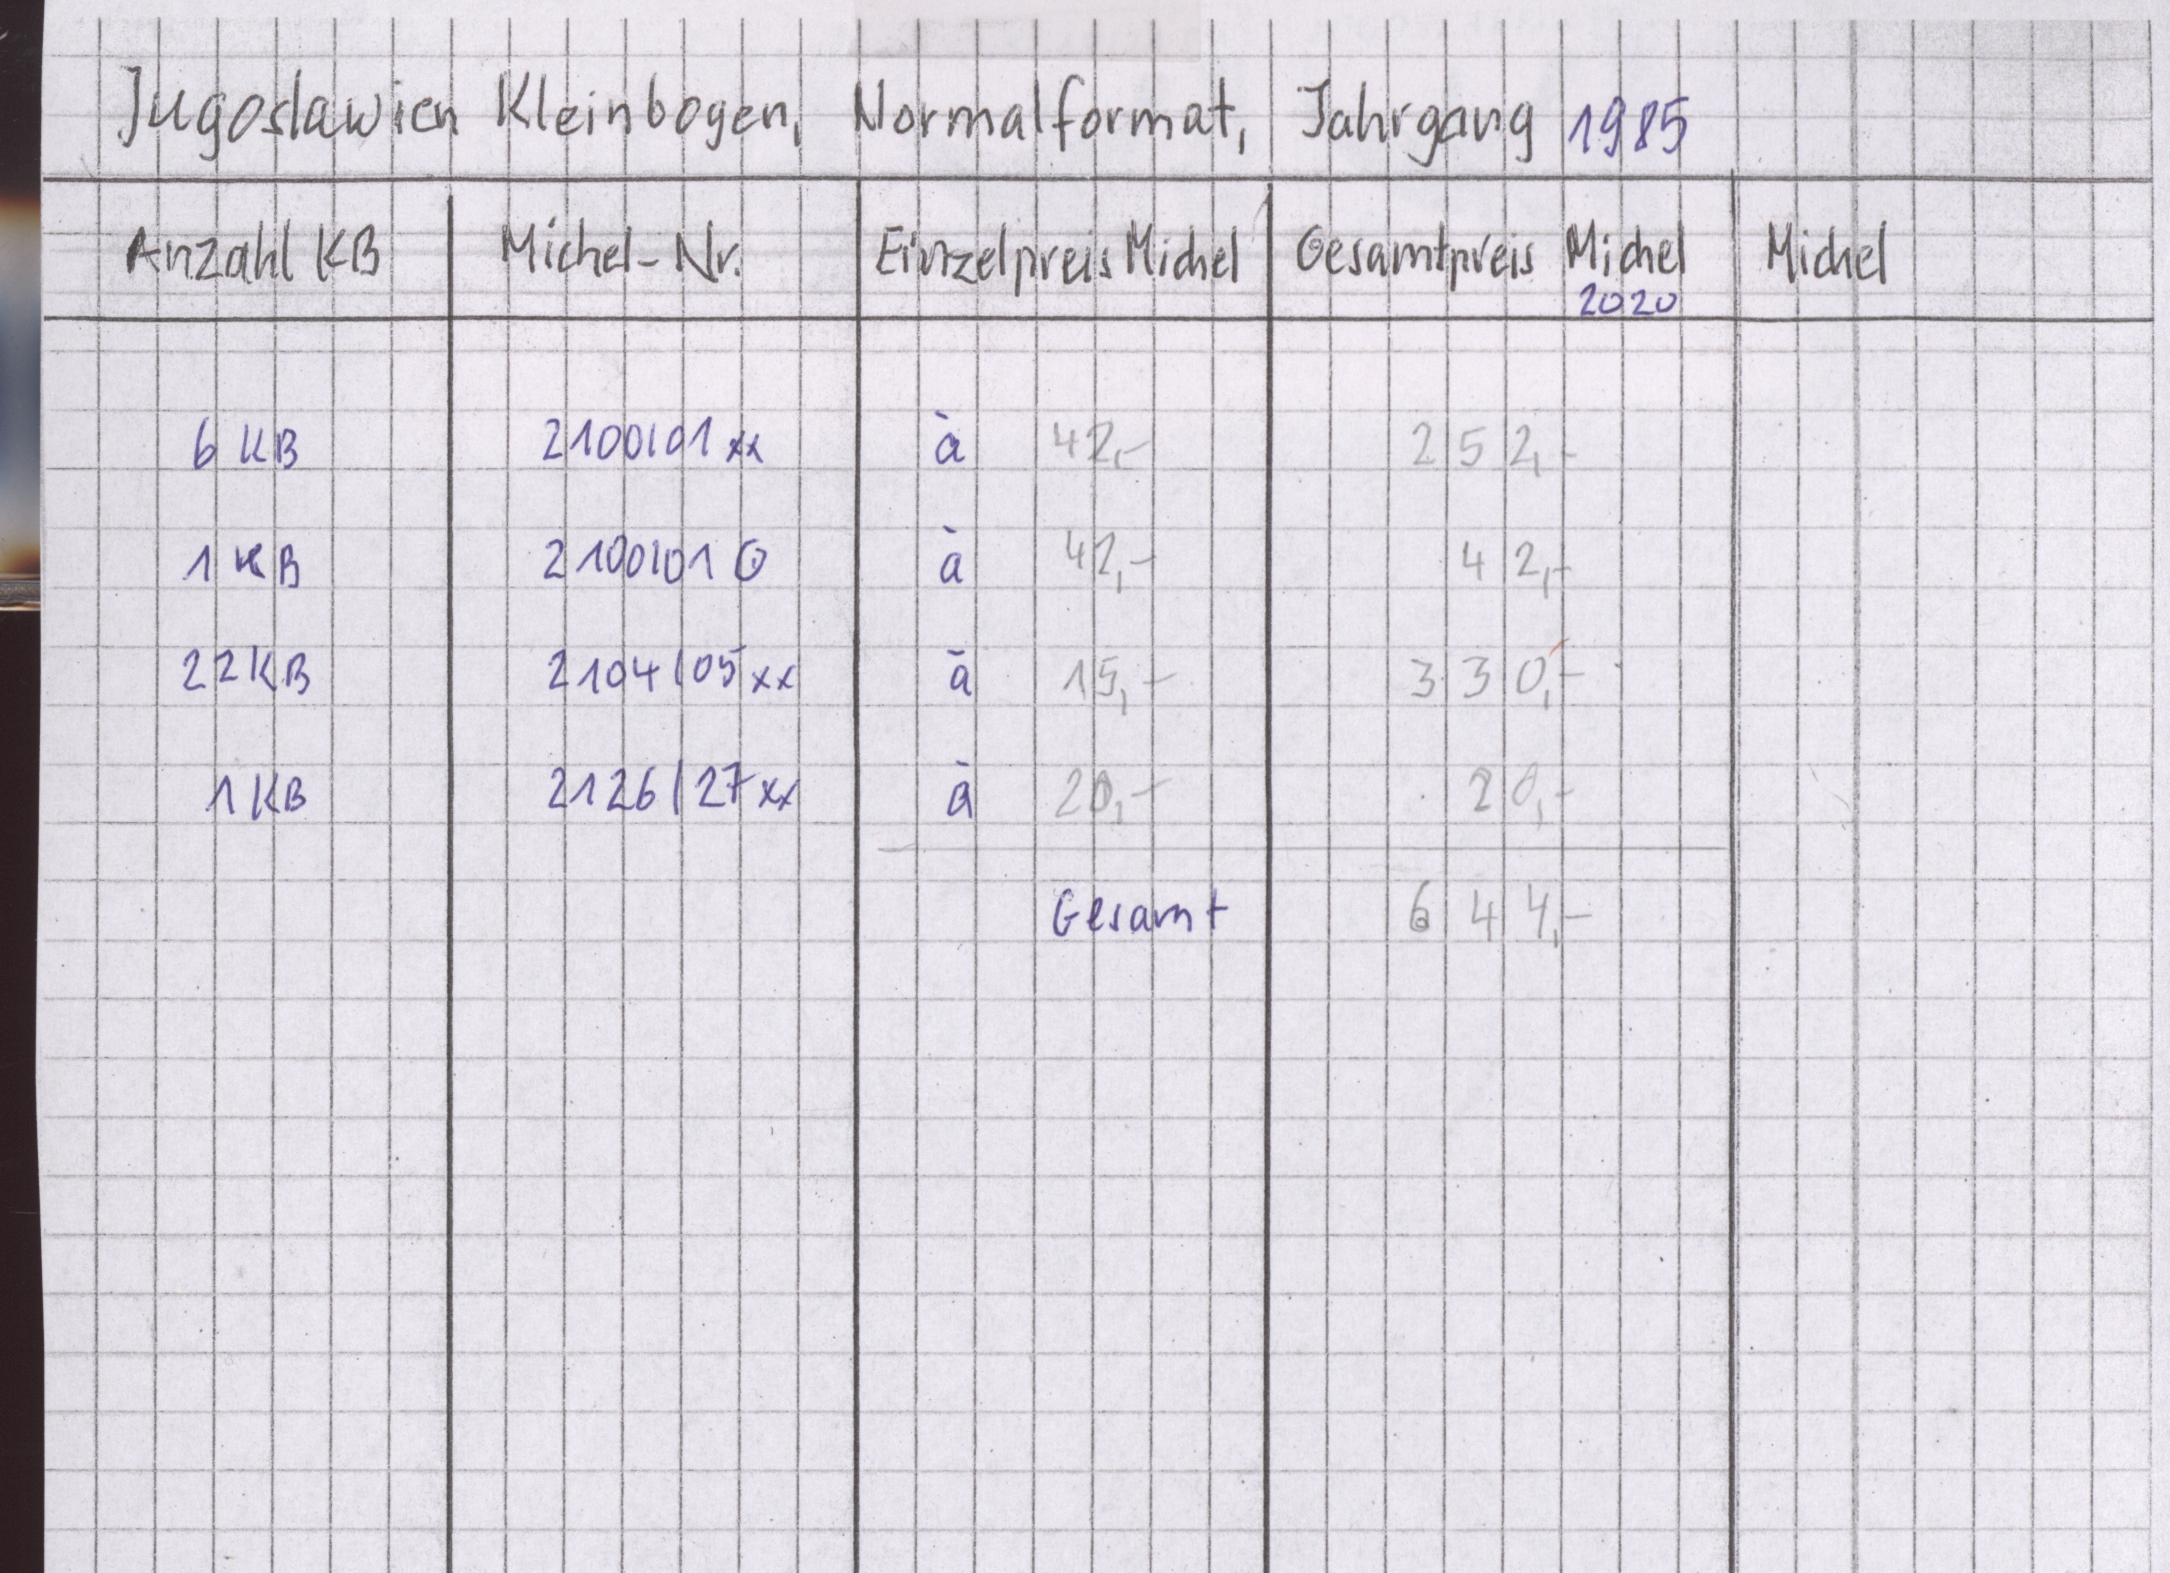 Jugoslawien Kleinbogen, Normalformat, Jahrgang 1985
Anzahl KB Michel-Nr. Einzelpreis Michel Gesamtpreis Michel Michel
2020
6 KB 2100/01 xx à 42,- 252,-
1 KB 2100/01 ⊙ à 42,- 42,-
22 KB 2104/05 xx à 15,- 330,-
1 KB 2126/27 xx à 20,- 20,-
Gesamt 644,-